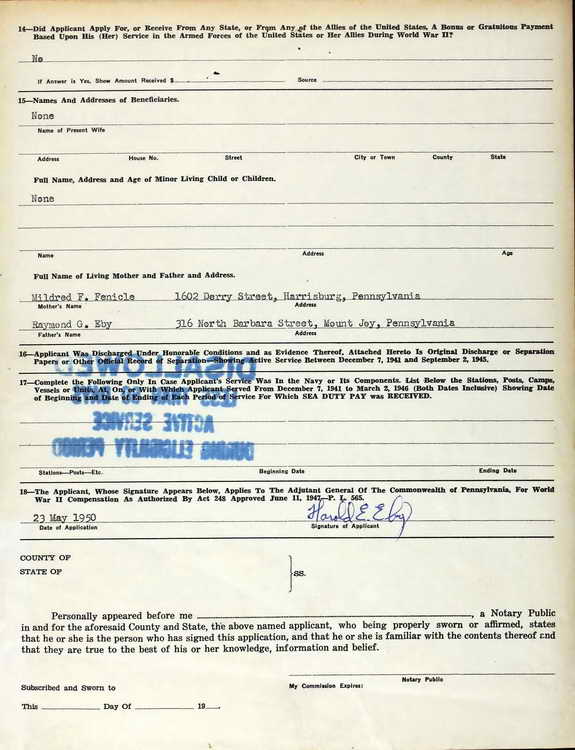 14—Did Applicant Apply For, or Receive From Any State, or From Any of the Allies of the United States, A Bonus or Gratuitous Payment
Based Upon His (Her) Service in the Armed Forces of the United States or Her Allies During World War II?
No
If Answer is Yes, Show Amount Received $ Source
15—Names And Addresses of Beneficiaries.
None
Name of Present Wife
Address House No. Street City or Town County State
Full Name, Address and Age of Minor Living Child or Children.
None
Name Address Age
Full Name of Living Mother and Father and Address.
Mildred F. Fenicle 1602 Derry Street, Harrisburg, Pennsylvania
Mother's Name Address
Raymond G. Eby 316 North Barbara Street, Mount Joy, Pennsylvania
Father's Name Address
16—Applicant Was Discharged Under Honorable Conditions and as Evidence Thereof, Attached Hereto Is Original Discharge or Separation
Papers or Other Official Record of Separation—Showing Active Service Between December 7, 1941 and September 2, 1945.
DISALLOWED
17—Complete the Following Only In Case Applicant's Service Was In the Navy or Its Components. List Below the Stations, Posts, Camps,
Vessels or Units, At On, or With Which Applicant Served From December 7, 1941 to March 2, 1946 (Both Dates Inclusive) Showing Date
of Beginning and Date of Ending of Each Period of Service For Which SEA DUTY PAY was RECEIVED.
ACTIVE SERVICE
DURING ELIGIBILITY PERIOD
Stations—Posts—Etc. Beginning Date Ending Date
18—The Applicant, Whose Signature Appears Below, Applies To The Adjutant General Of The Commonwealth of Pennsylvania, For World
War II Compensation As Authorized By Act 248 Approved June 11, 1947—P. L. 565.
23 May 1950 Harold E. Eby
Date of Application Signature of Applicant
COUNTY OF
STATE OF ss.
Personally appeared before me , a Notary Public
in and for the aforesaid County and State, the above named applicant, who being properly sworn or affirmed, states
that he or she is the person who has signed this application, and that he or she is familiar with the contents thereof and
that they are true to the best of his or her knowledge, information and belief.
Notary Public
Subscribed and Sworn to My Commission Expires:
This Day Of 19